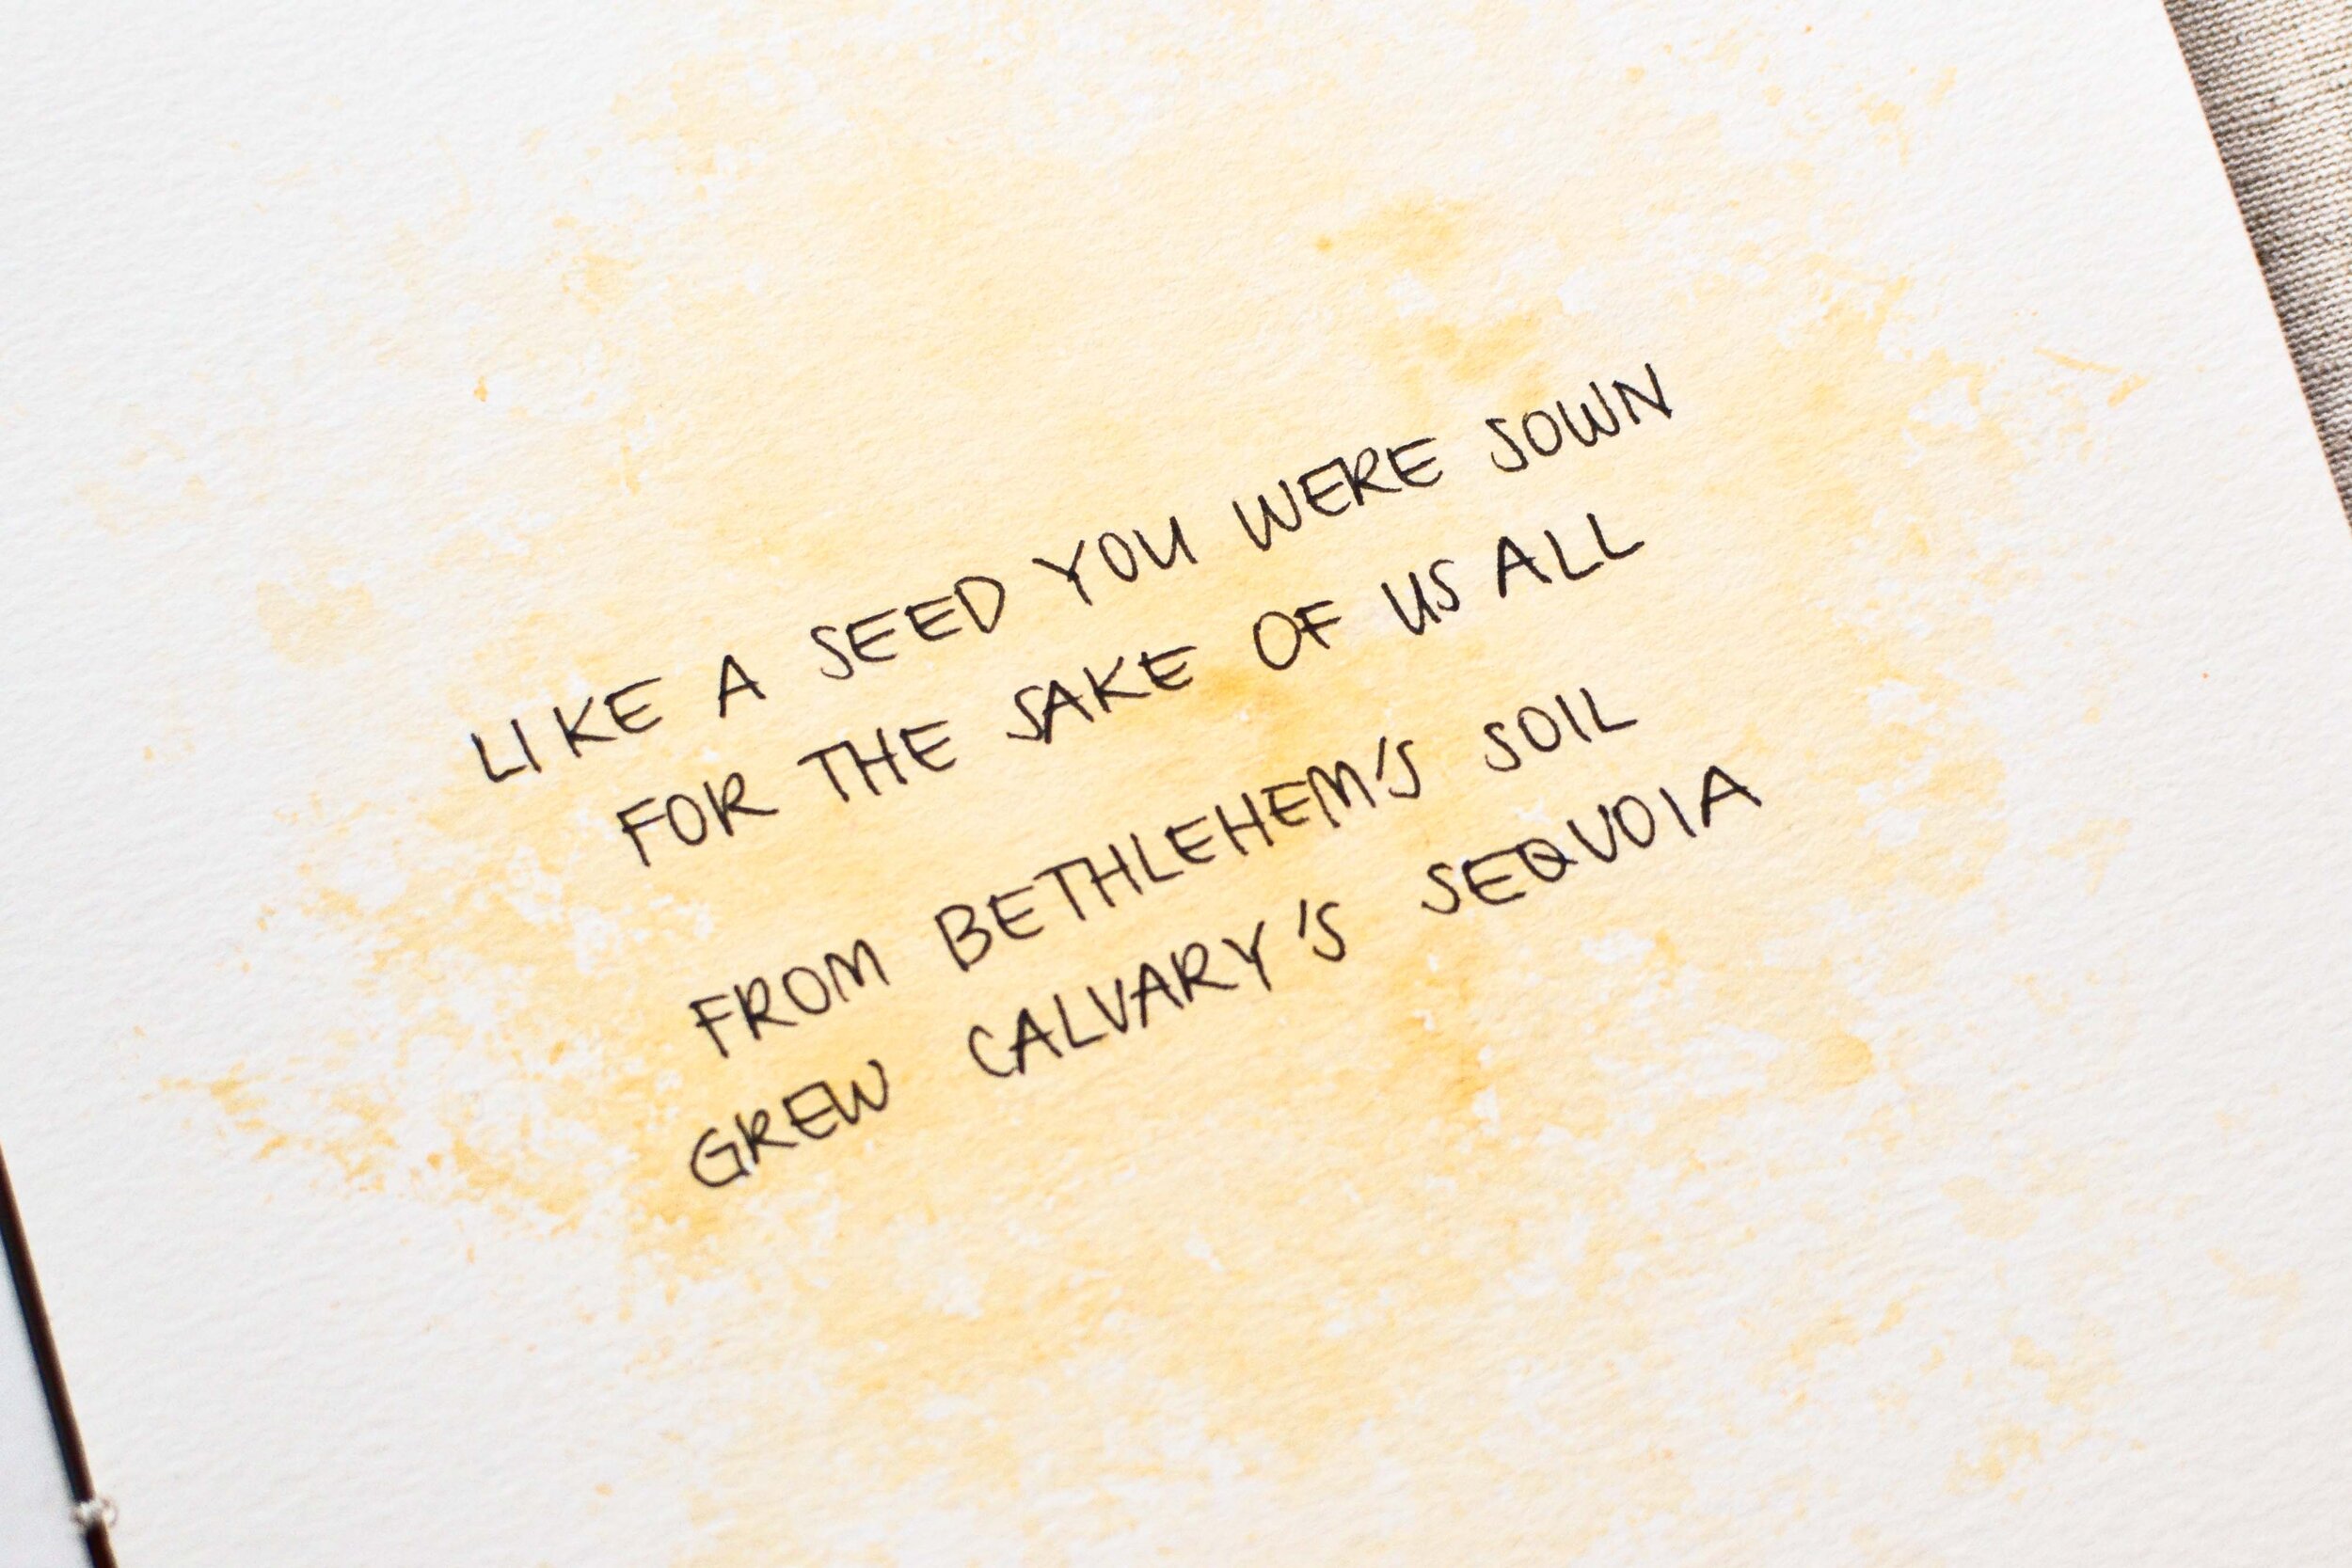 LIKE A SEED YOU WERE SOWN
FOR THE SAKE OF US ALL
FROM BETHLEHEM'S SOIL
GREW CALVARY'S SEQUOIA